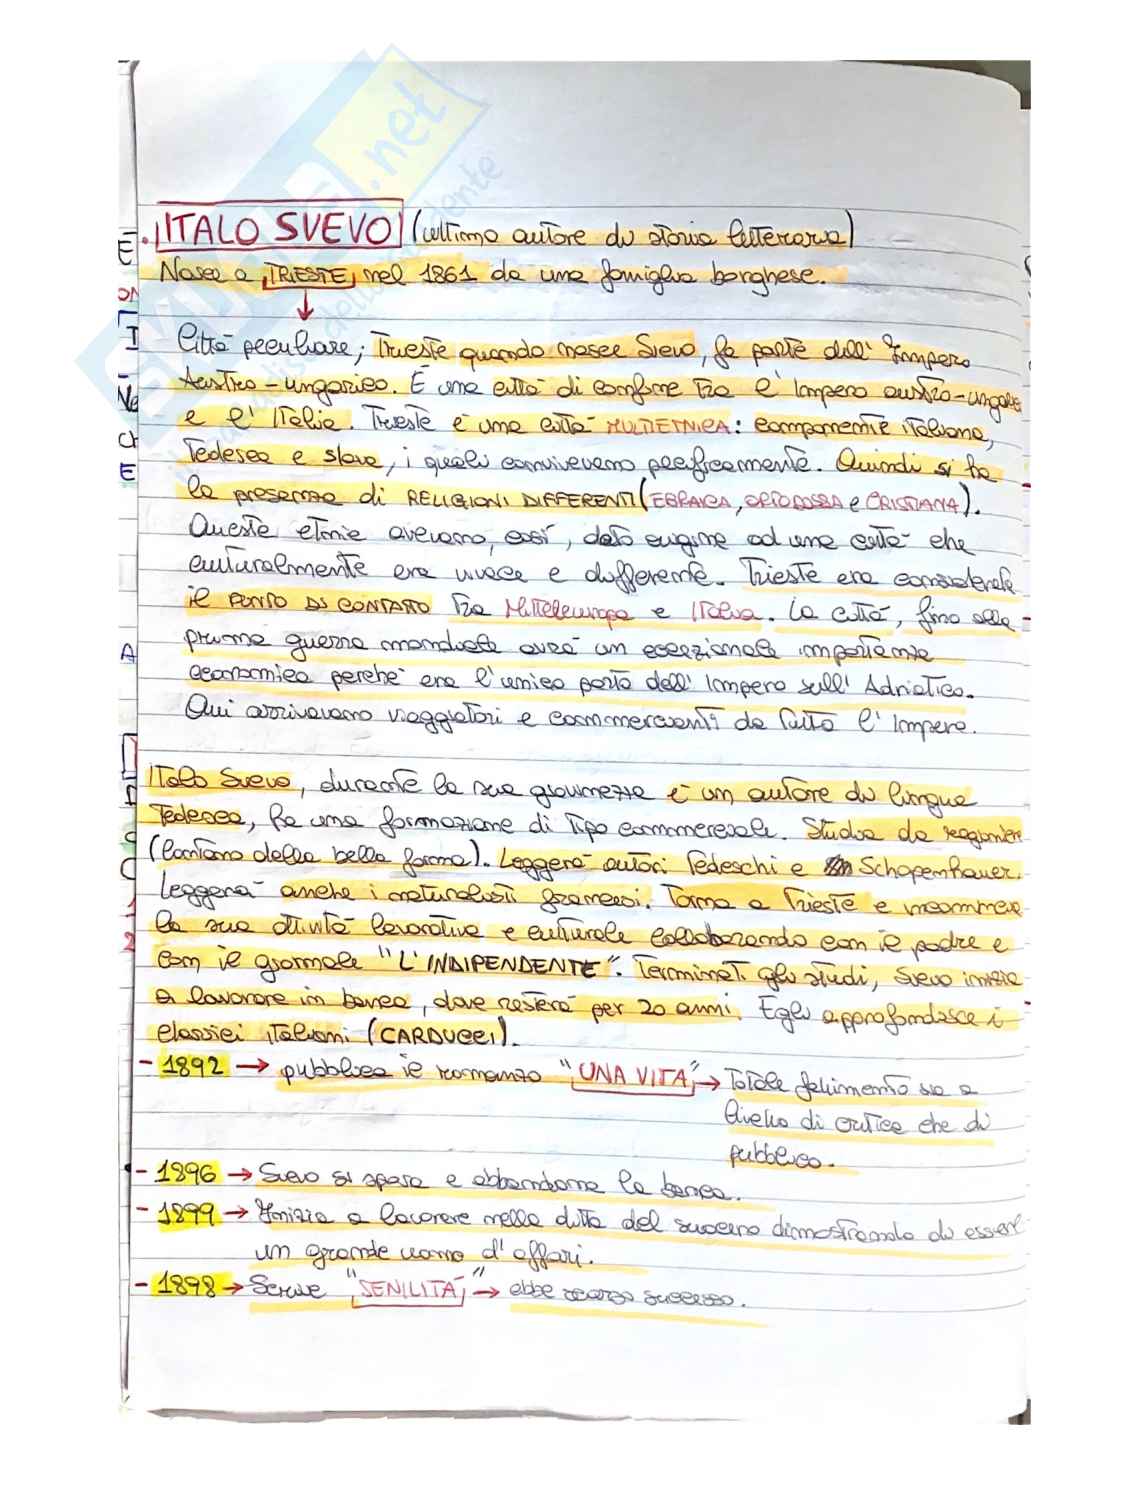 . ITALO SVEVO (ultimo autore di storia letteraria)
Nasce a TRIESTE nel 1861 da una famiglia borghese.
Città peculiare; Trieste quando nasce Svevo, fa parte dell' Impero
Austro-ungarico. È una città di confine tra l' Impero austro-ungarico
e l' Italia. Trieste è una città MULTIETNICA: componente italiana,
tedesca e slava, i quali convivevano pacificamente. Quindi si ha
la presenza di RELIGIONI DIFFERENTI (EBRAICA, ORTODOSSA e CRISTIANA).
Queste etnie avevano, così, dato origine ad una città che
culturalmente era vivace e differente. Trieste era considerata
il PUNTO DI CONTATTO tra Mitteleuropa e Italia. La città, fino alla
prima guerra mondiale avrà un eccezionale importanza
economica perché era l'unico porto dell' Impero sull' Adriatico.
Qui arrivavano viaggiatori e commercianti da tutto l' Impero.
Italo Svevo, durante la sua giovinezza è un autore di lingua
tedesca, ha una formazione di tipo commerciale. Studia da ragioniere
(lontano dalla bella forma). Leggerà autori tedeschi e Schopenhauer.
Leggerà anche i naturalisti francesi. Torna a Trieste e incomincia
la sua attività lavorativa e culturale collaborando con il padre e
con il giornale "L'INDIPENDENTE". Terminati gli studi, Svevo inizia
a lavorare in banca, dove resterà per 20 anni. Egli approfondisce i
classici italiani (CARDUCCI).
- 1892 → pubblica il romanzo "UNA VITA" → Totale fallimento sia a
livello di critica che di
pubblico.
- 1896 → Svevo si sposa e abbandona la banca.
- 1899 → Inizia a lavorare nella ditta del suocero dimostrando di essere
un grande uomo d'affari.
- 1898 → Scrive "SENILITÀ" → ebbe scarso successo.